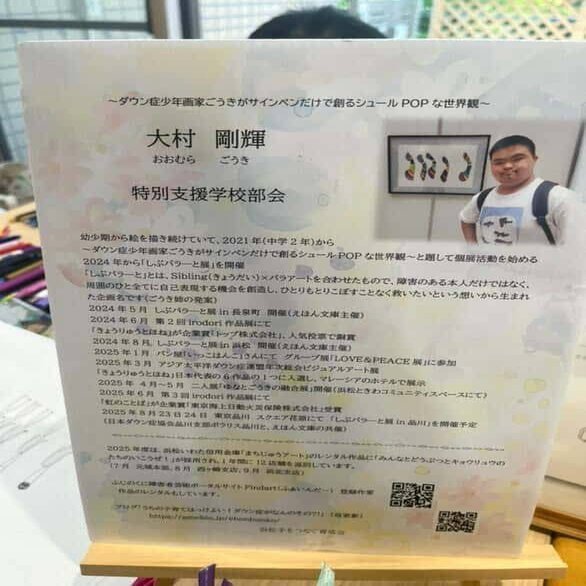 ～ダウン症少年画家ごうきがサインペンだけで創るシュール POP な世界観～
大村　剛輝
おおむら　ごうき
特別支援学校部会
幼少期から絵を描き続けていて、2021年(中学2年)から
～ダウン症少年画家ごうきがサインペンだけで創るシュール POP な世界観～と題して個展活動を始める
2024年から「しぶパラ―と展」を開催
「しぶパラ―と」とは、Sibling(きょうだい)×パラアートを合わせたもので、障害のある本人だけではなく、
周囲のひと全てに自己表現する機会を創造し、ひとりもとりこぼすことなく救いたいという想いから生まれ
た企画名です(ごうき姉の発案)
2024年5月 しぶパラ―と展 in 長泉町 開催(えほん文庫主催)
2024年6月 第2回 irodori 作品展にて
「きょうりゅうとはね」が企業賞「トップ株式会社」、人気投票で銅賞
2024年8月 しぶパラ―と展 in 浜松 開催(えほん文庫主催)
2025年1月 パン屋「いっこはんこ」さんにて グループ展「LOVE&PEACE 展」に参加
2025年3月 アジア太平洋ダウン症連盟年次総会ビジュアルアート展
「きょうりゅうとはね」日本代表の6作品の1つに入選し、マレーシアのホテルで展示
2025年 4月～5月 二人展「ゆなとごうきの融合展」開催(浜松ときわコミュニティスペースにて)
2025年6月 第3回 irodori 作品展にて
「虹のことば」が企業賞「東京海上日動火災保険株式会社」受賞
2025年8月23日24日 東京品川 スクエア荏原にて 「しぶパラ―と展 in 品川」を開催予定
(日本ダウン症協会品川支部ポラリス品川と、えほん文庫の共催)
2025年度は、浜松いわた信用金庫「まちじゅうアート」のレンタル作品に「みんなとどうぶつとキョウリュウの
たちのいこうぜ！」が採用され、1年間に12店舗を巡回しています。
(7月 元城本部、8月 西ヶ崎支店、9月 浜北支店)
ふじのくに障害者芸術ポータルサイト Findart(ふぁいんだー) 登録作家
作品のレンタルもしています。
ブログ「うちの子育てはっけよい！ダウン症がなんのその?!」
浜松手をつなぐ育成会